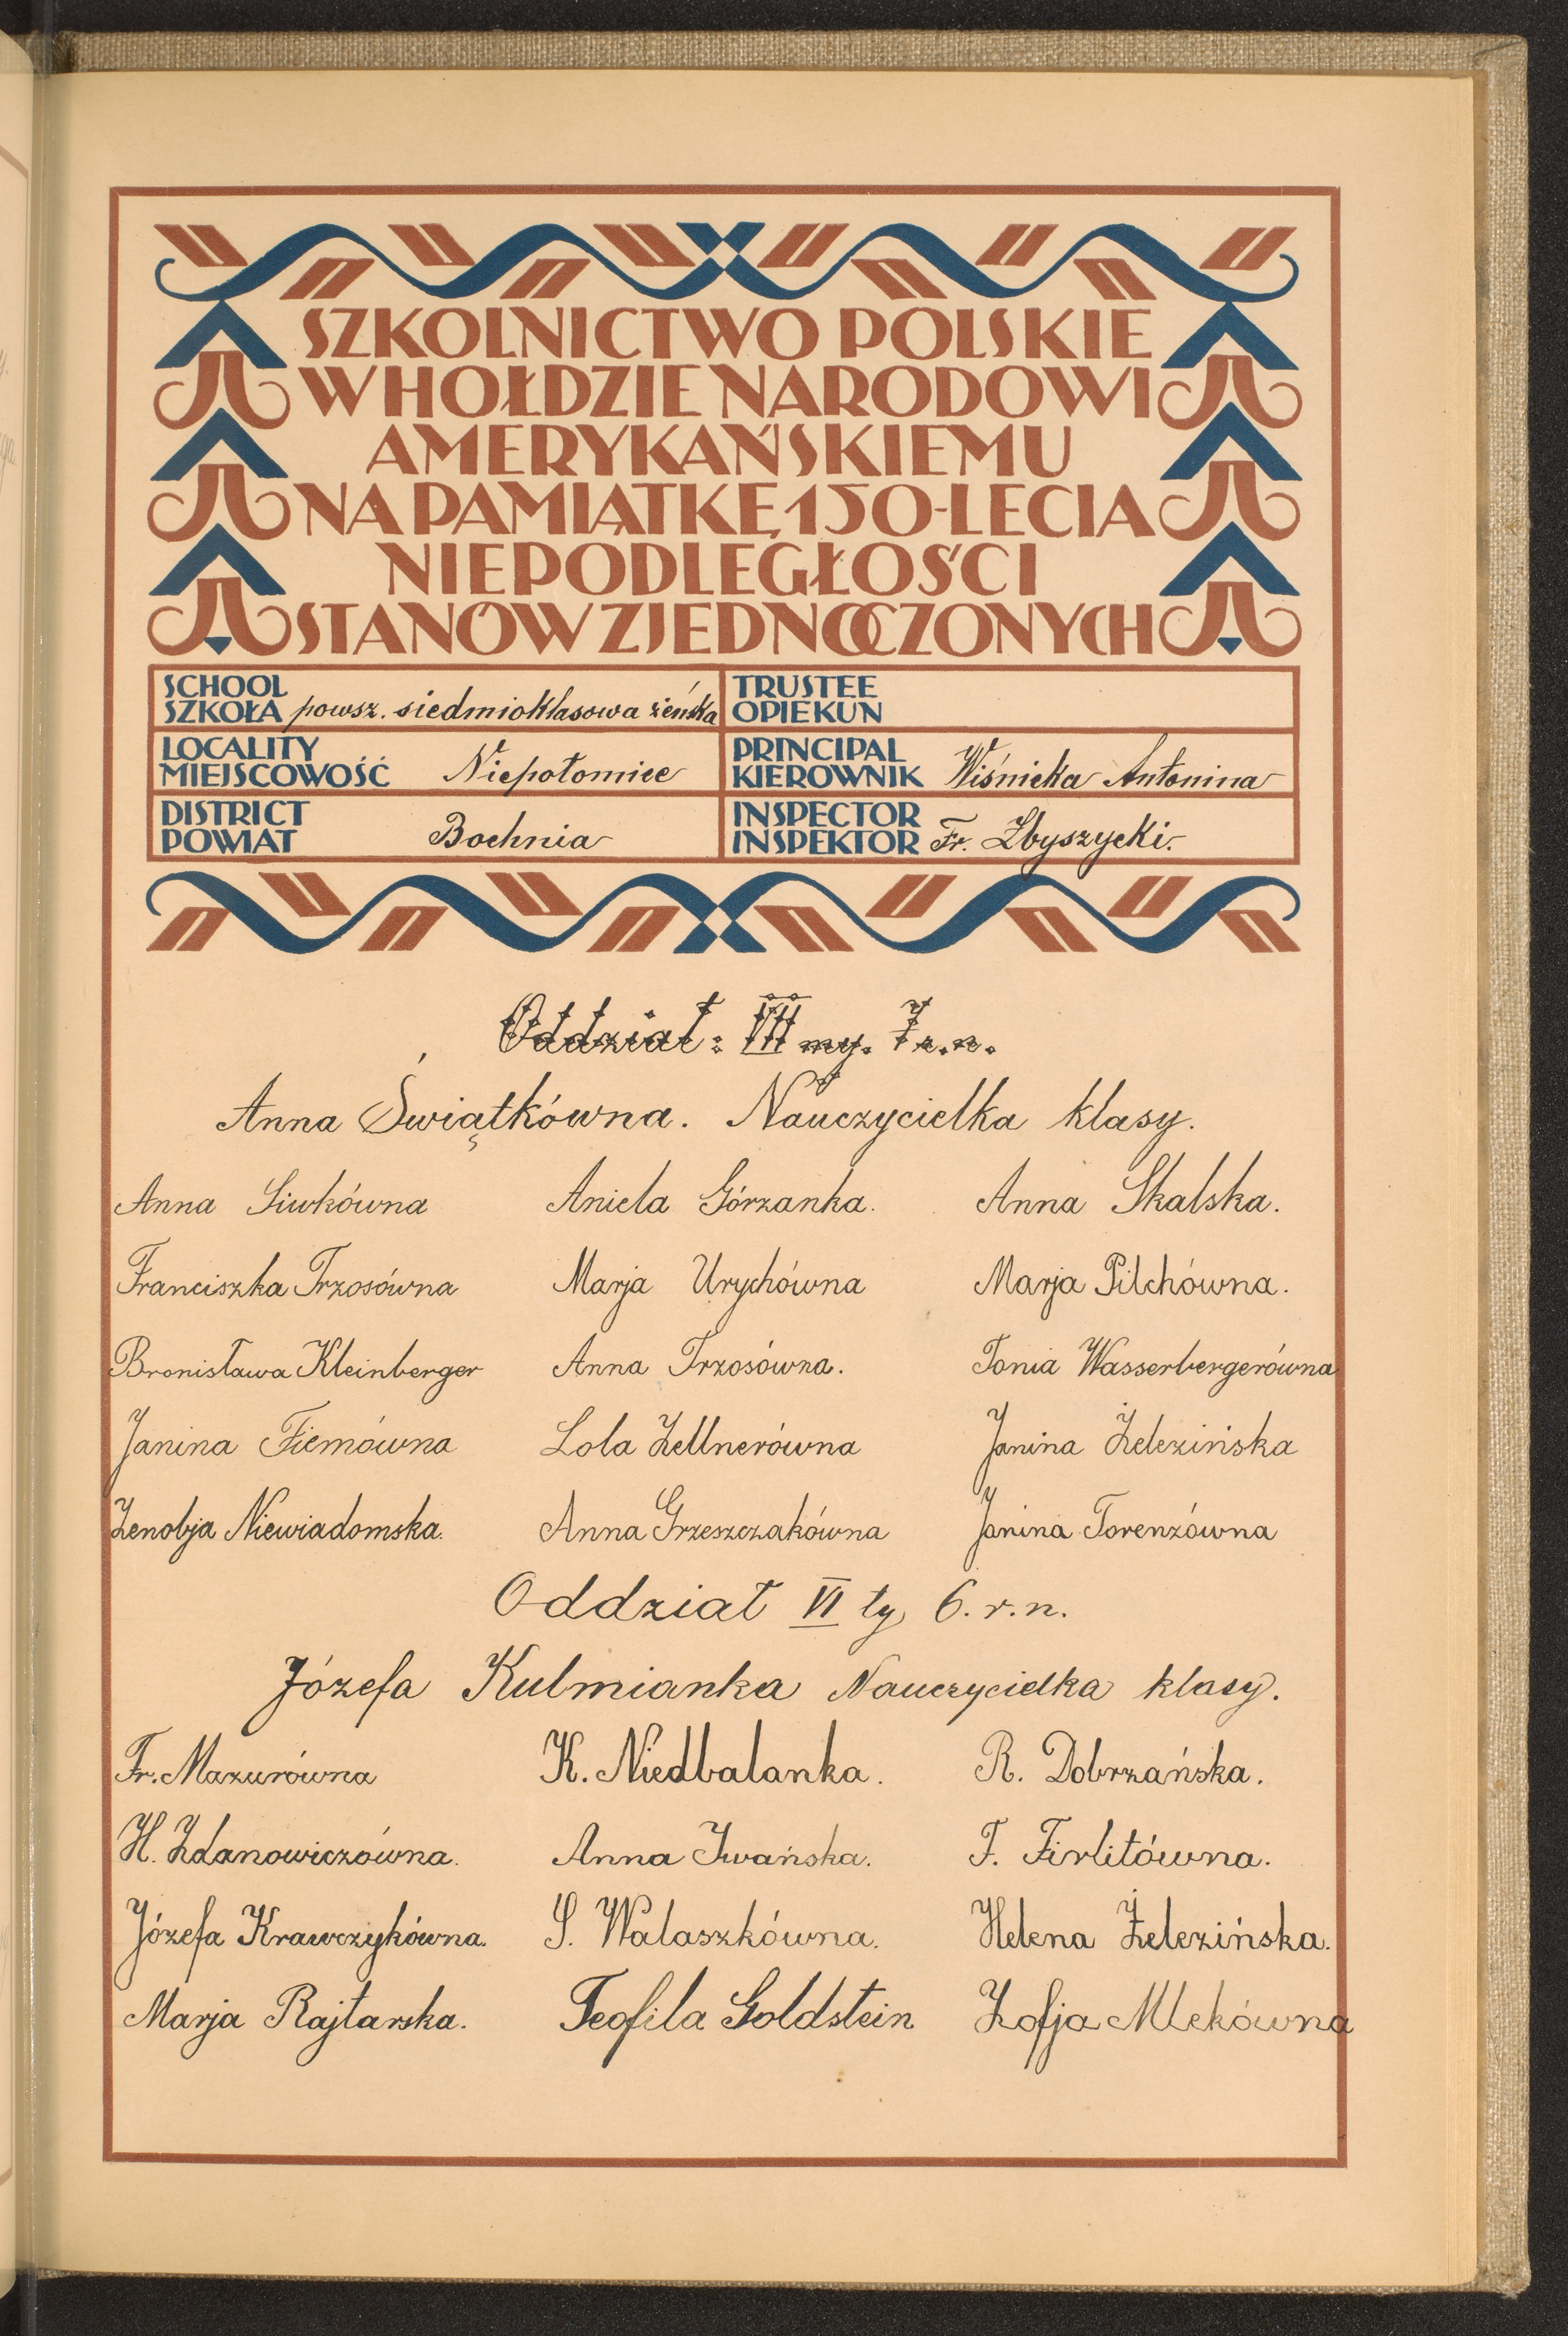 SZKOLNICTWO POLSKIE
W HOŁDZIE NARODOWI
AMERYKAŃSKIEMU
NA PAMIĄTKĘ 150-LECIA
NIEPODLEGŁOŚCI
STANÓW ZJEDNOCZONYCH
SCHOOL
SZKOŁA powsz. siedmioklasowa żeńska
TRUSTEE
OPIEKUN
LOCALITY
MIEJSCOWOŚĆ Niepołomice
PRINCIPAL
KIEROWNIK Wiśnicka Antonina
DISTRICT
POWIAT Bochnia
INSPECTOR
INSPEKTOR Fr. Zbyszycki.
Oddział: VII my. 7 r. n.
Anna Świątkówna. Nauczycielka klasy.
Anna Siwkówna Aniela Górzanka. Anna Skalska.
Franciszka Trzosówna Marja Urychówna Marja Pilchówna.
Bronisława Kleinberger Anna Trzosówna. Tonia Wasserbergerówna
Janina Fiemówna Lola Zellnerówna Janina Żelezińska
Zenobja Niewiadomska. Anna Grzeszczakówna Janina Torenzówna
Oddział VI ty 6. r. n.
Józefa Kulmianka Nauczycielka klasy.
Fr. Mazurówna K. Niedbalanka. R. Dobrzańska.
H. Zdanowiczówna. Anna Iwańska. F. Firlitówna.
Józefa Krawczykówna. S. Walaszkówna. Helena Żelezińska.
Marja Rajtarska. Teofila Goldstein Zofja Mlekówna